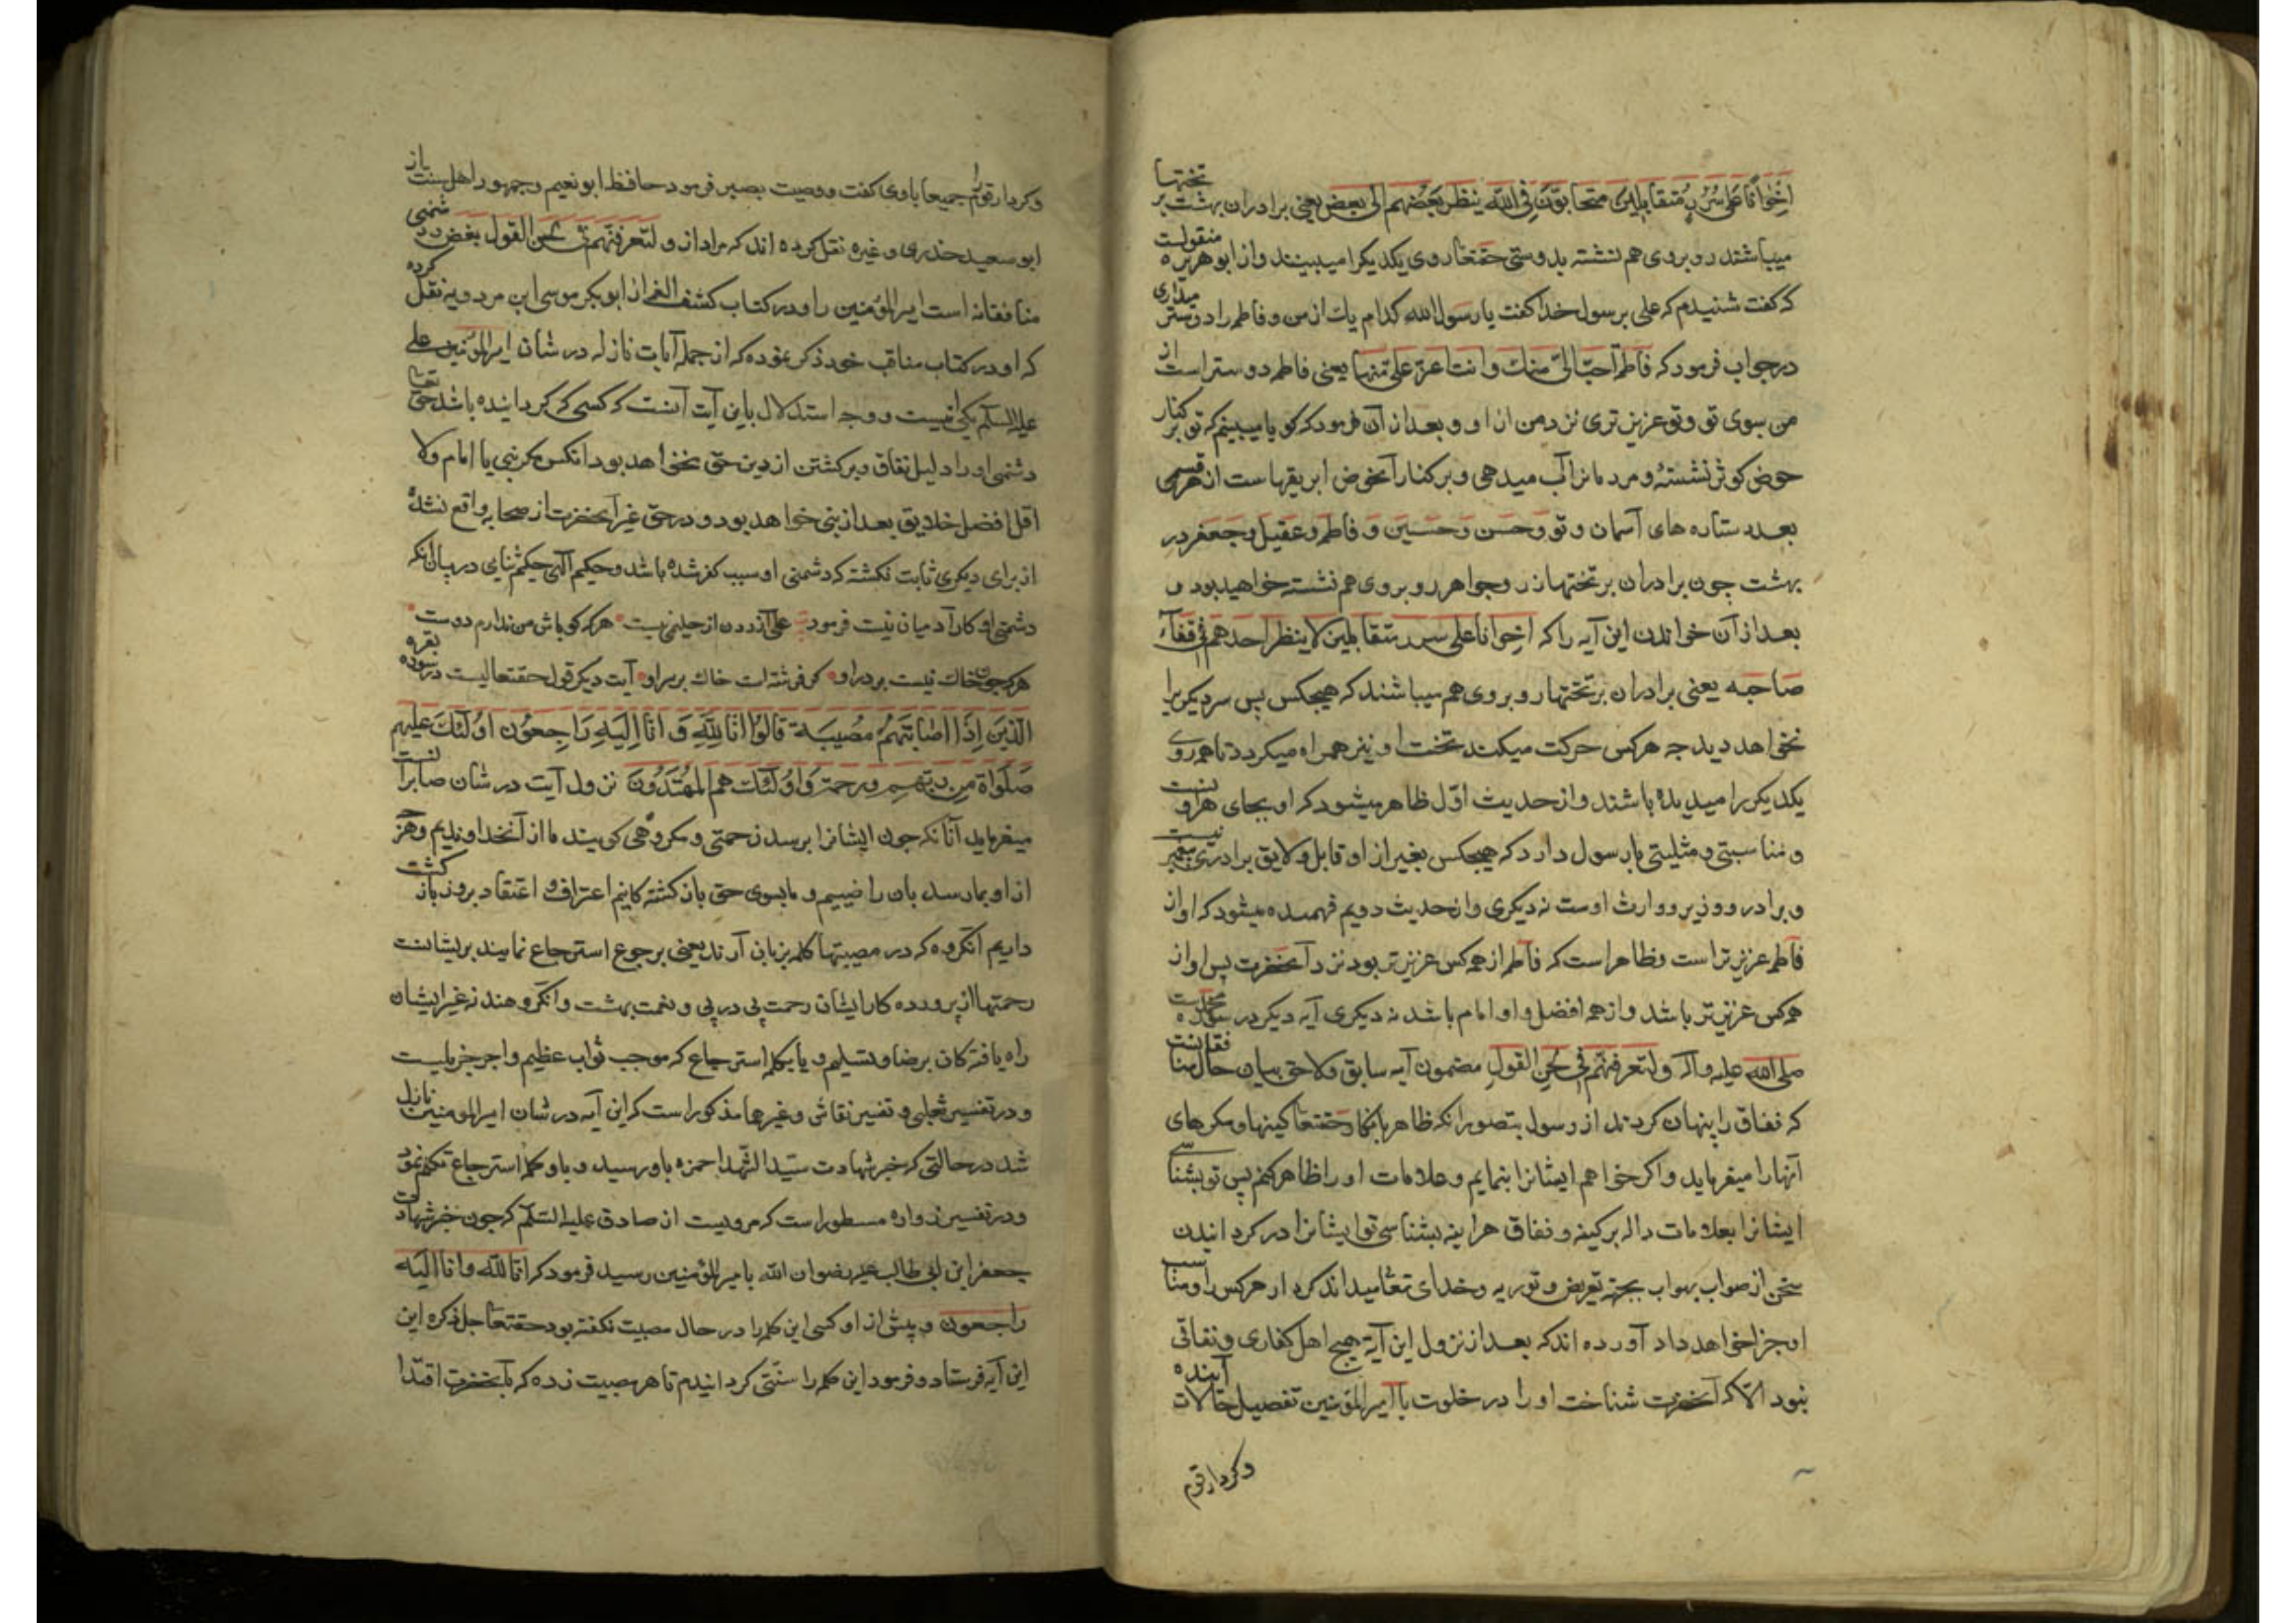 اِخْوَانًا عَلی سُرُرٍ مُتَقَابِلِینَ متحابّون فِی اللّه ینظر بَعْضُهم الی بعض یعنی برادران بهشت بر تختها
میباشند روبروی هم نشسته بدوستی حقتعا روی یکدیکر را میبینند و از ابوهریره منقولست
که کفت شنیدم که علی برسول خدا کفت یا رسول الله کدام یك از من و فاطمه را دوستر میداری
درجواب فرمود که فاطمة احبّ الیّ منك و انت اعزّ علیّ منها یعنی فاطمه دوستر است از
من بسوی تو و تو عزیزتری نزد من از او و بعد از آن فرمود که کویا میبینم که تو بر کنار
حوض کوثر نشستهٔ و مردمانرا آب میدهی و بر کنار آنحوض ابریقها است از هر قسمی
بعدد ستاره های آسمان و تو و حسن و حسین و فاطمه و عقیل و جعفر در
بهشت چون برادران بر تختها زر و جواهر روبروی هم نشسته خواهید بود و
بعد از آن خواندن این آیه را که اخوانا علی سرر متقابلین لا ینظر احدهم فی قفاء
صاحبه یعنی برادران بر تختها روبروی هم میباشند که هیچکس پس سر دیکریرا
نخواهد دید چه هرکس حرکت میکند تخت او نیز همراه میکردد تا هم روی
یکدیکر را میدیده باشند و از حدیث اوّل ظاهر میشود که او بجای هرو نست
و مناسبتی و مثلیتی بارسول دارد که هیچکس بغیر از او قابل و لایق برادری پیغمبر نیست
و برادر و وزیر و وارث اوست نه دیکری و از حدیث دویم فهمیده میشود که او از
فاطمه عزیزتر است و ظاهر است که فاطمه از همه کس عزیزتر بود نزد آنحضرت پس او از
همه کس عزیزتر باشد و از همه افضل و او امام باشد نه دیکری آیه دیکر در سوره محمد است
صلی الله علیه و آله و لتعرفنّهم فی لحن القول مضمون آیه سابق و لاحق بیان حال منافقانست
که نفاق را پنهان کردند از رسول بتصور انکه ظاهر با حقتعا کینها و مکرهای
آنها را میفرماید و اکر خواهم ایشانرا بنمایم و علامات او را ظاهر کنم پس تو بشناسی
ایشانرا بعلامات داله بر کینه و نفاق هراینه بشناسی تو ایشانرا در کردانیدن
سخن از صواب بجهة تعریض و توریه و خدای تعا میداند کردار هرکس را و مناسب
او جزا خواهد داد آورده اند که بعد از نزول این آیة هیچ اهل کفاری و نفاقی
نبود الّا که آنحضرت شناخت او را در خلوت با امیرالمؤمنین تفصیل حالات آینده
وکردار قوم
وکردار قوم را جمیعا باوی کفت و وصیت بصبر فرمود حافظ ابونعیم و جمهور اهل سنت از
ابوسعید خدری و غیره نقل کرده اند که مراد از و لتعرفنّهم فی لحن القول بغض و دشمنی
منافقانه است امیرالمؤمنین را و در کتاب کشف الغمه از ابوبکر موسی ابن مردویه نقل کرده
که او در کتاب مناقب خود ذکر نموده که از جمله آیات نازله در شان امیرالمؤمنین علی
علیه السلام یکی اینست و وجه استدلال باین آیت آنست که کسی که کردانیده باشد حق تعا
دشمنی او را دلیل نفاق و برکشتن از دین حق نخواهد بود انکس مکر نبی یا امام ولا
اقل افضل خلایق بعد از نبی خواهد بود و در حق غیر آنحضرت از صحابه واقع نشده
از برای دیکری ثابت نکشته که دشمنی او سبب کفر شده باشد و حکیم الهی حکیم ثنایی در بیان انکه
دشمنی او کار آدمیان نیست فرمود علی آزردن از نیست هرکه کو باش من ندارم دوست
هرکه چون خاك نیست بردر او کر فرشته است خاك بر سر او آیت دیکر قول حقتعالیست در سوره بقره
الَّذینَ اِذَا اصَابَتهُمْ مُصیبَة قالوُا انّا لِلّهِ وَ انّا اِلَیهِ رَاجِعوُن اوُلئك عَلیهم
صَلَواة مِن ربّهم و رحمة وَ اوُلئك هم المُهتَدُونَ نزول آیت در شان صابرانست
میفرماید آنانکه چون ایشانرا برسد زحمتی و مکروهی کویند ما از آن خداوندیم و هرچه
از او بما رسد بان راضییم و ما بسوی حق باز کشته کانیم اعتراف و اعتقاد بروز باز کشت
داریم انکروه که در مصیبتها کلمه بزبان آرند یعنی برجوع استرجاع نمایند بریشانست
رحمتها از پرورده کار ایشان رحمت پی در پی و نعمت بهشت و انکروهند نه غیر ایشان
راه یافته کان برضا و تسلیم و یا بکلمه استرجاع که موجب ثواب عظیم و اجر جزیلیست
و در تفسیر ثعلبی و تفسیر نقاش و غیرهما مذکور است که این آیه در شان امیرالمومنین نازل
شد در حالتی که خبر شهادت سیّد الشّهدا حمزه باو رسید و باو کلمه استرجاع تکلم نمود
و در تفسیر زواره مسطور است که مرویست از صادق علیه السّلم که چون خبر شهادت
جعفر ابن ابی طالب علیه رضوان الله بامیرالمؤمنین رسید فرمود که انّا للّه و انّا الَیه
راجعون و پیش از او کسی این کلمه را در حال مصیبت نکفته بود حقتعا جل ذکره این
این آیه فرستاد و فرمود این کلمه را سنّتی کردانیدم تا هر مصیبت زده که بآنحضرت اقتدا